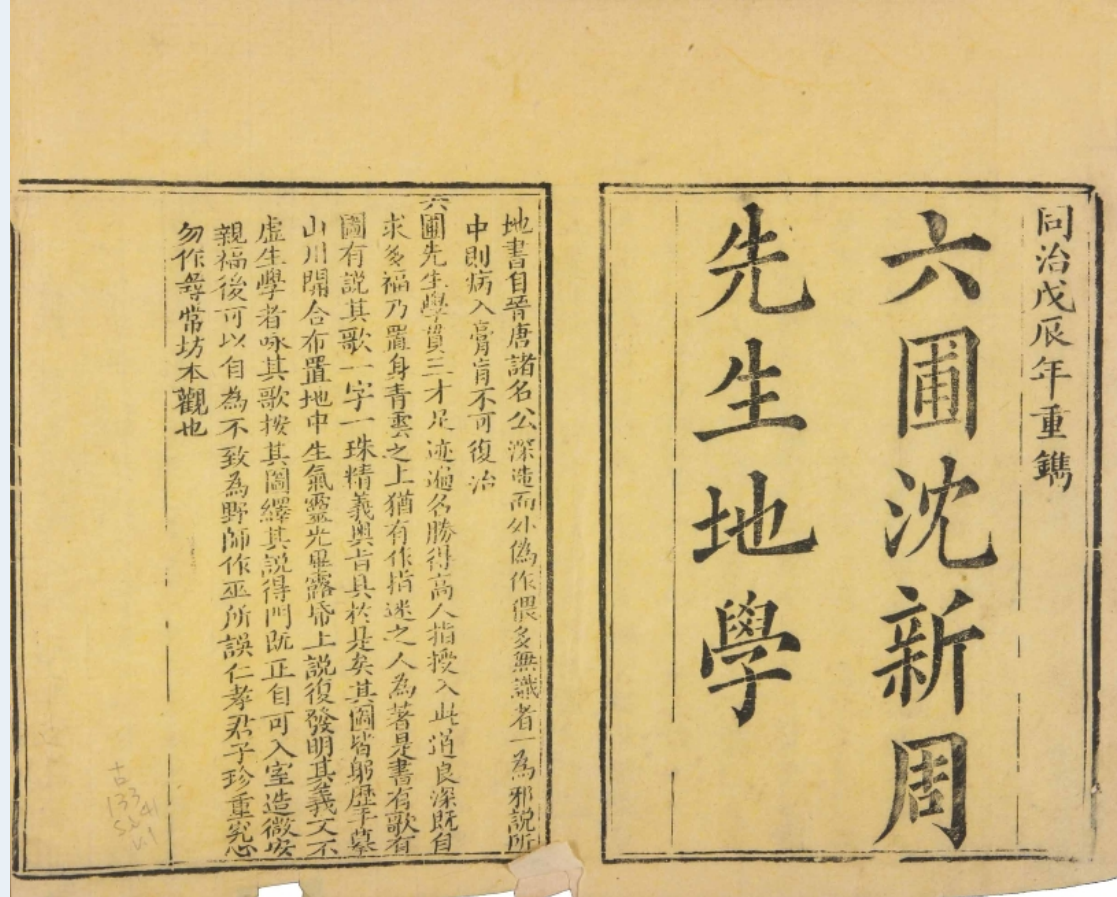 同治戊辰年重鐫
六圃沈新周
先生地學
地書自晉唐諸名公深造而外偽作偎多無識者一為邪說所
中則病入膏肓不可復治
六圃先生學貫三才足迹遍名勝得高人指授入此道良深既自
求多福乃置身青雲之上猶有作指迷之人為著是書有歌有
圖有說其歌一字一珠精義奧旨具於是矣其圖皆躬歷手摹
山川開合布置地中生氣靈光畢露帋上說復發明其義文不
虛生學者咏其歌按其圖繹其說得門既正自可入室造微安
親福後可以自為不致為野師作巫所誤仁孝君子珍重究心
勿作尋常坊本觀也
古
133
41
v.1